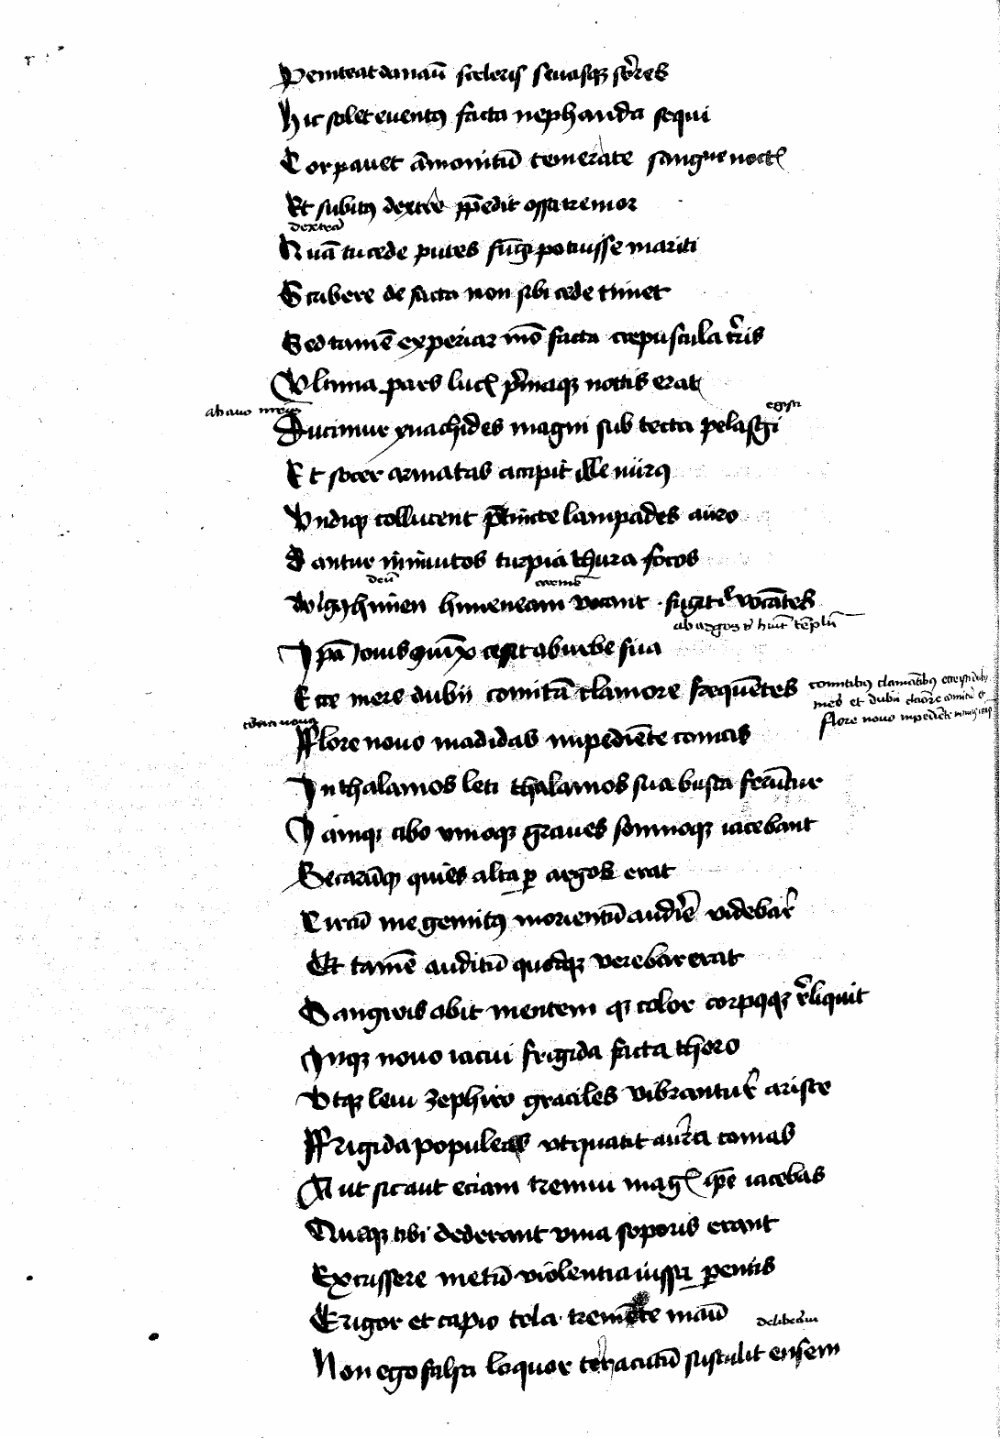 Peniteat danaū sceleris seuasqꝫ sorores
Hic solet euentꝰ facta nephanda sequi
Cor pauet āmonitū temerate sanguīe noctꝭ
Et subitꝰ dextre p̄pedit ossa tremor
dextra
Quā tu cede putes fūgi potuisse mariti
Scribere de facta non sibi cede timet
Sed tamē experiar mō facta crepuscula t̓ris
Vltima pars lucꝭ p̓maqꝫ noctis erat
ab auo
Ducimur ynachides magni sub tecta pelasgi
egisti
Et socer armatas accipit ille nurꝰ
Vndiqꝫ collucent p̄cincte lampades auro
Dantur in inuitos turpia thura focos
deū
wlgꝰ hymen hymeneam vocant fugit vocātes
ab argos
Ipā Iouis  cessit ab urbe sua
Ecce mere dubii comitū clamore frequētes
comitibꝰ clamātibꝰ
flore nouo impediēte
Fflore nouo madidas impediēte comas
In thalamos leti thalamos sua busta ferūtur
Iamqꝫ cibo vinoqꝫ graues somnoqꝫ iacebant
Securūqꝫ quies alta ꝑ argos erat
Circū me gemitꝰ morientū audir̄e videbar̓
Et tamē auditū quodqꝫ verebar erat
Sanguis abit mentem qꝫ color corpꝰqꝫ r̓liquit
Inqꝫ nouo iacui frigida facta thoro
Vtqꝫ leui zephiro graciles vibrantur̓ ariste
Ffrigida populeas ut quatit aura comas
Aut sic aut eciam tremui magꝭ ip̄e iacebas
Queqꝫ tibi dederant vina soporis erant
Excussere metū violentia iussa ꝑentis
Erigor et capio tela tremēte manū
Non ego falsa loquor ter acutū sustulit ensem